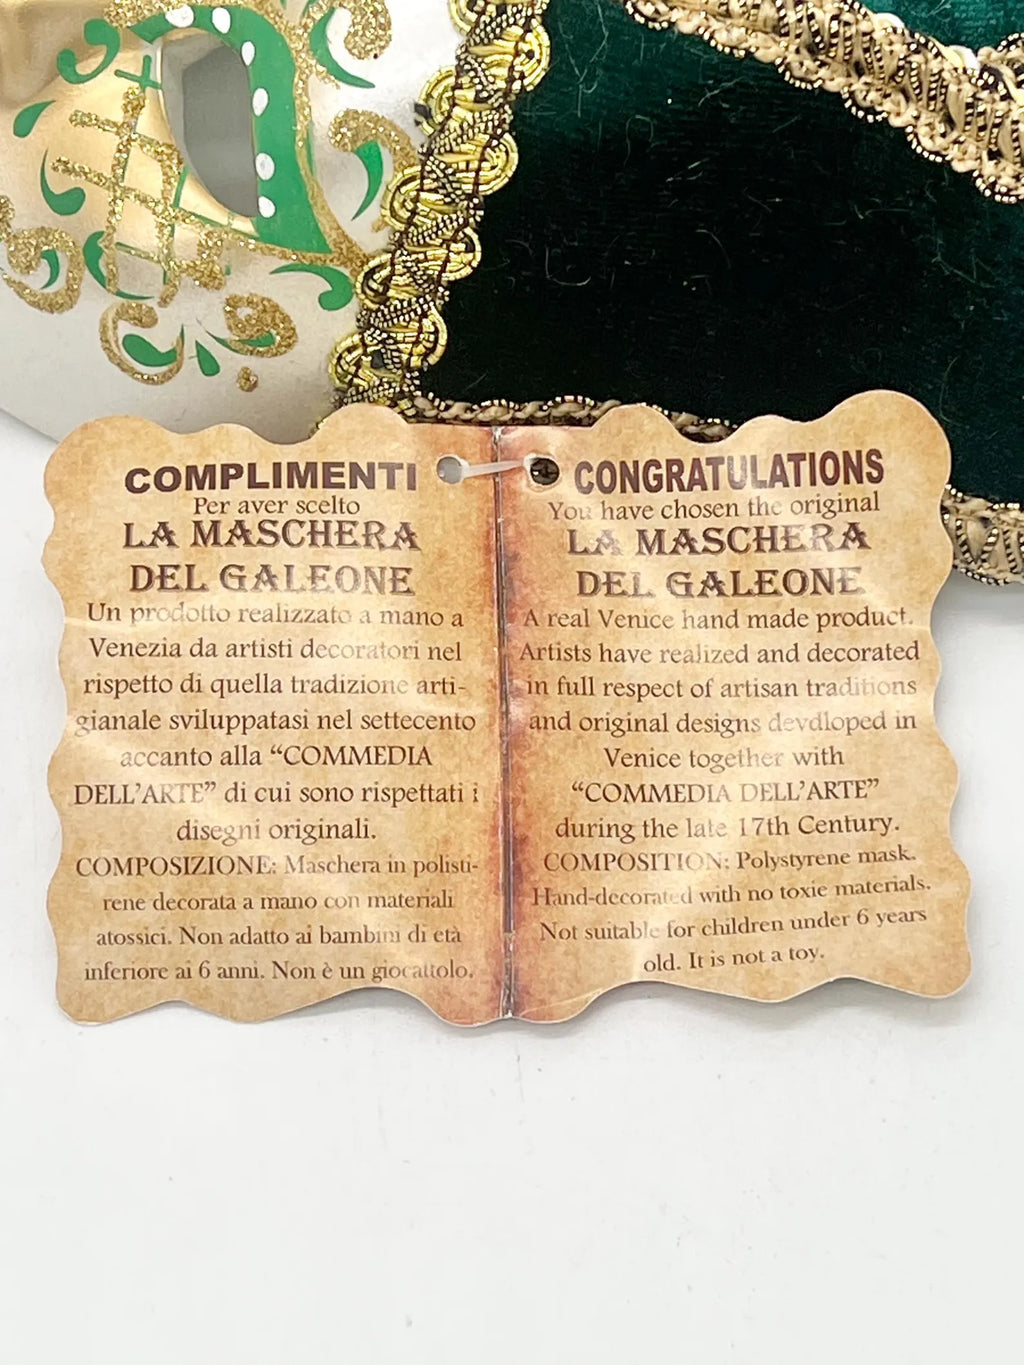 COMPLIMENTI
Per aver scelto
LA MASCHERA
DEL GALEONE
Un prodotto realizzato a mano a
Venezia da artisti decoratori nel
rispetto di quella tradizione arti-
gianale sviluppatasi nel settecento
accanto alla “COMMEDIA
DELL’ARTE” di cui sono rispettati i
disegni originali.
COMPOSIZIONE: Maschera in polisti-
rene decorata a mano con materiali
atossici. Non adatto ai bambini di età
inferiore ai 6 anni. Non è un giocattolo.
CONGRATULATIONS
You have chosen the original
LA MASCHERA
DEL GALEONE
A real Venice hand made product.
Artists have realized and decorated
in full respect of artisan traditions
and original designs devdloped in
Venice together with
“COMMEDIA DELL’ARTE”
during the late 17th Century.
COMPOSITION: Polystyrene mask.
Hand-decorated with no toxie materials.
Not suitable for children under 6 years
old. It is not a toy.